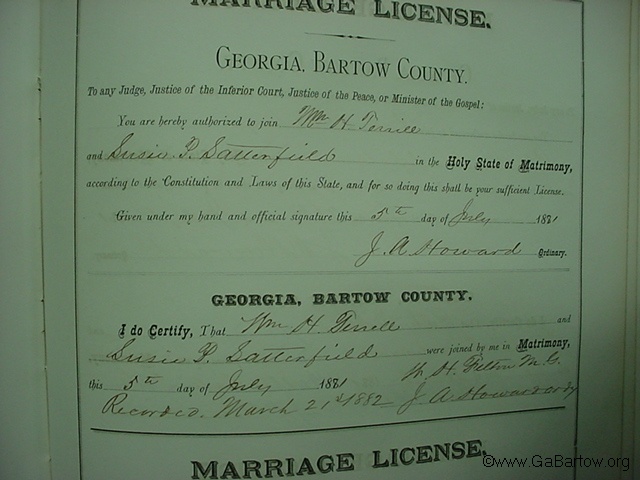 MARRIAGE LICENSE.
GEORGIA, BARTOW COUNTY.
To any Judge, Justice of the Inferior Court, Justice of the Peace, or Minister of the Gospel:
You are hereby authorized to join Wm H Terrell
and Susie P. Satterfield in the Holy State of Matrimony,
according to the Constitution and Laws of this State, and for so doing this shall be your sufficient License.
Given under my hand and official signature this 5th day of July 1881
J. A Howard Ordinary.
GEORGIA, BARTOW COUNTY.
I do Certify, That Wm H Terrell and
Susie P. Satterfield were joined by me in Matrimony,
this 5th day of July 1881 W. H. Felton M. G.
Recorded. March 21st 1882 J A Howard ordy
MARRIAGE LICENSE.
©www.GaBartow.org